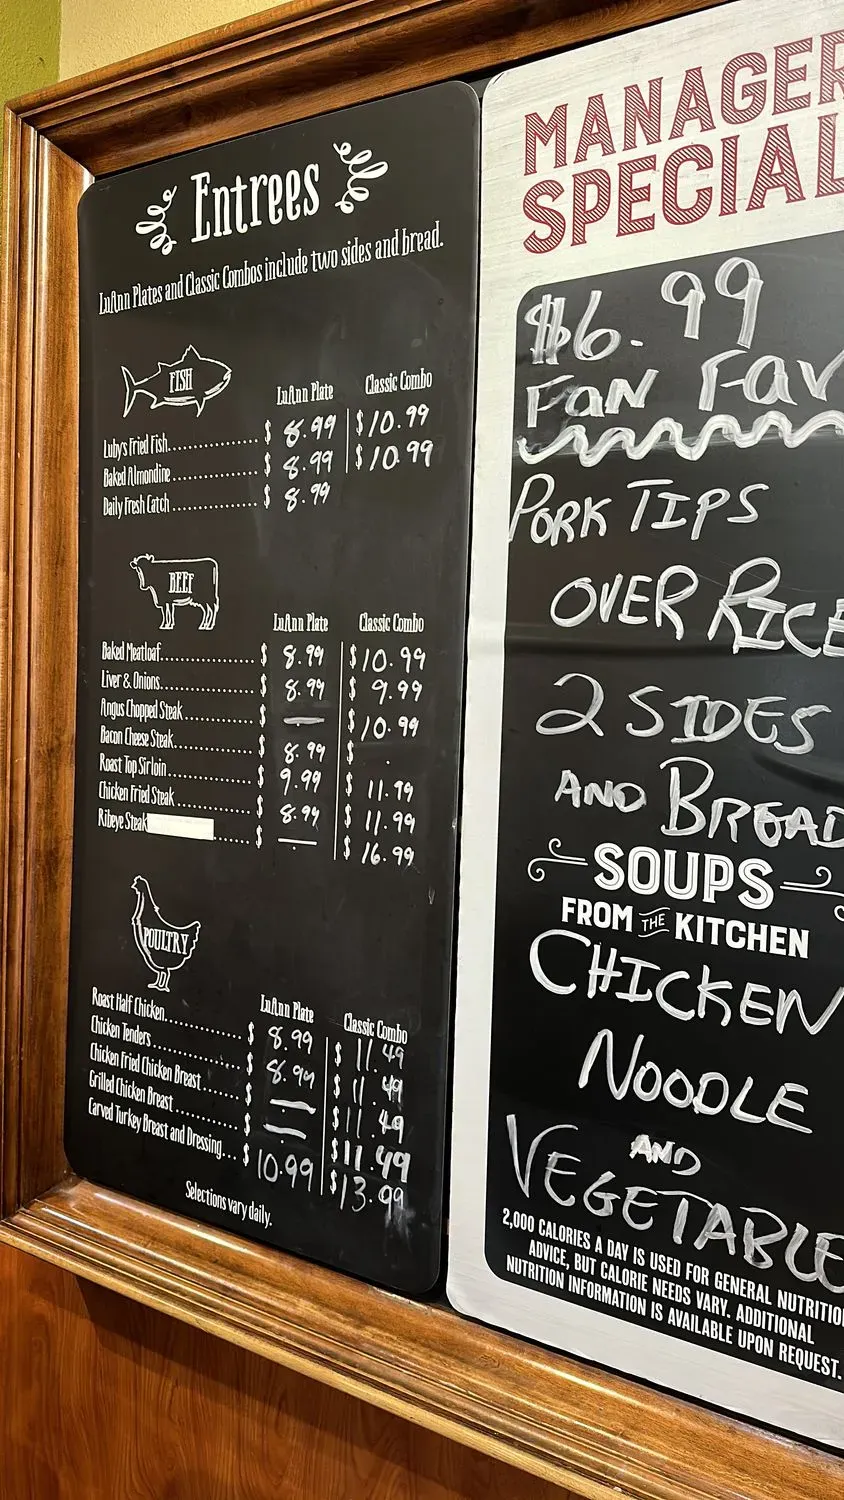 Entrees
LuAnn Plates and Classic Combos include two sides and bread.
FISH
LuAnn Plate Classic Combo
Luby's Fried Fish.................... $ 8.99 $10.99
Baked Almondine .................... $ 8.99 $10.99
Daily Fresh Catch .................... $ 8.99
BEEF
LuAnn Plate Classic Combo
Baked Meatloaf.................... $ 8.99 $10.99
Liver & Onions.................... $ 8.99 $ 9.99
Angus Chopped Steak.................... $ — $10.99
Bacon Cheese Steak.................... $ 8.99 $ .
Roast Top Sirloin.................... $ 9.99 $ 11.99
Chicken Fried Steak.................... $ 8.99 $ 11.99
Ribeye Steak ........ $ — $ 16.99
POULTRY
LuAnn Plate Classic Combo
Roast Half Chicken.................... $ 8.99 $ 11.49
Chicken Tenders .................... $ 8.99 $ 11.49
Chicken Fried Chicken Breast ........ $ — $ 11.49
Grilled Chicken Breast .............. $ — $11.49
Carved Turkey Breast and Dressing... $ 10.99 $13.99
Selections vary daily.
MANAGER
SPECIAL
$6.99
FAN FAV
PORK TIPS
OVER RICE
2 SIDES
AND BREAD
SOUPS
FROM THE KITCHEN
CHICKEN
NOODLE
AND
VEGETABLE
2,000 CALORIES A DAY IS USED FOR GENERAL NUTRITION
ADVICE, BUT CALORIE NEEDS VARY. ADDITIONAL
NUTRITION INFORMATION IS AVAILABLE UPON REQUEST.